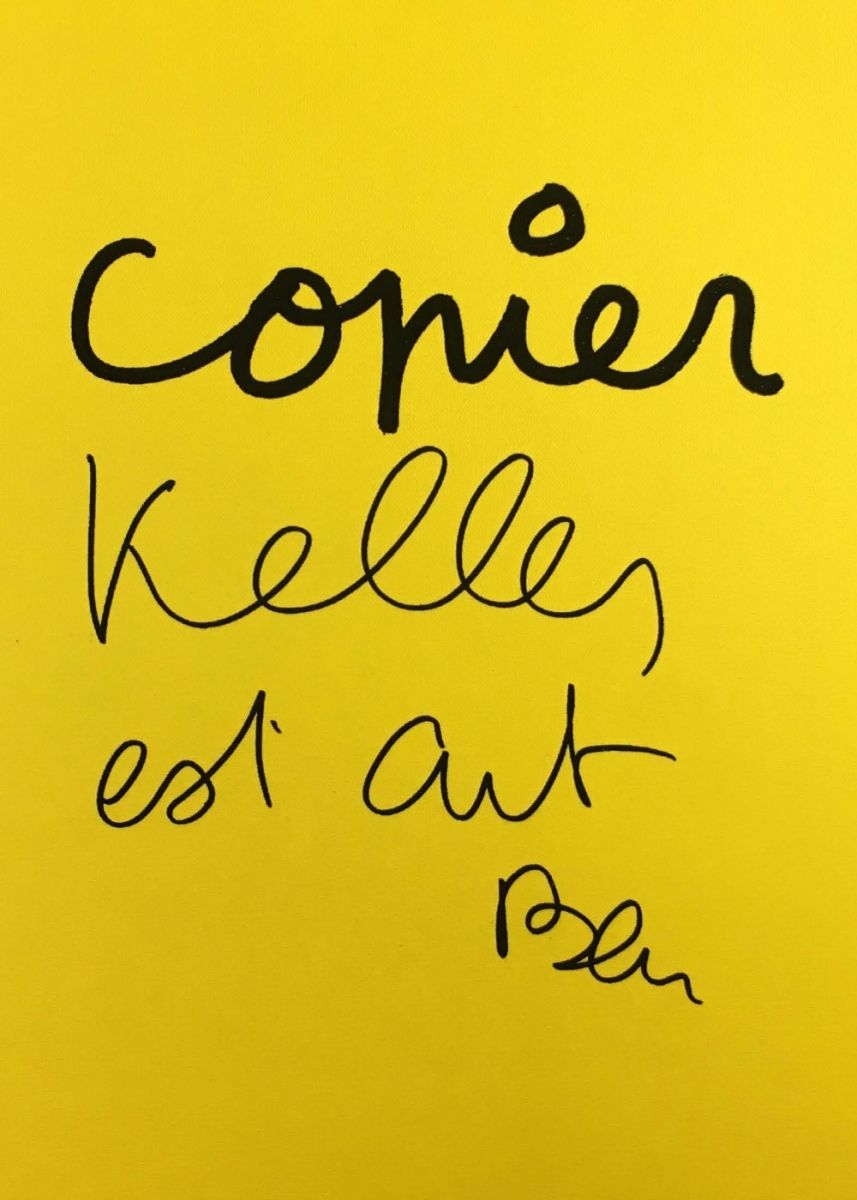 copier
Keller
est art
Ben